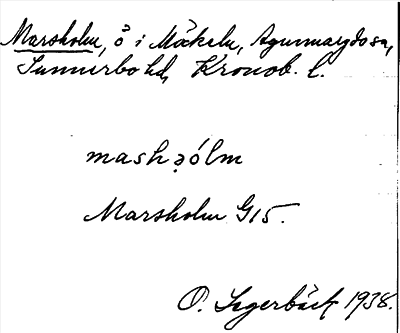 Marsholm, ö i Möckeln, Agunnaryds sn,
Sunnerbo hd, Kronob. l.
mashəólm
Marsholm G15.
O. Lagerbäck 1938.